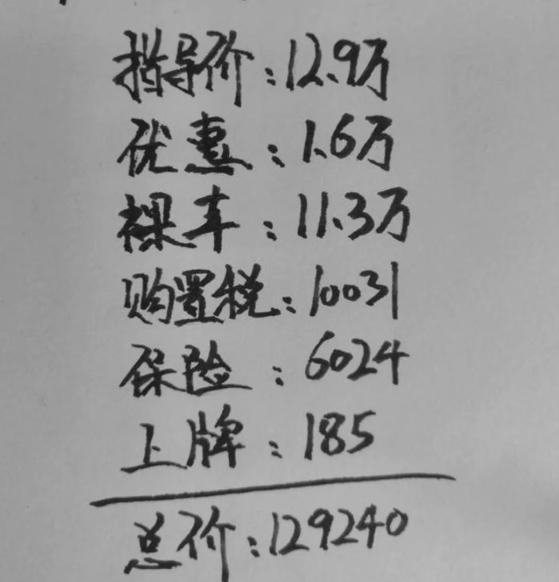 指导价：12.9万
优惠：1.6万
裸车：11.3万
购置税：10031
保险：6024
上牌：185
总价：129240